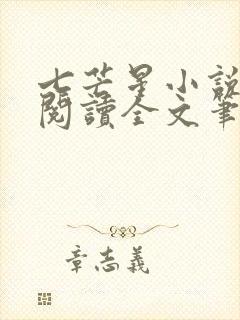 七芒星小說
閱讀全文筆
章志義